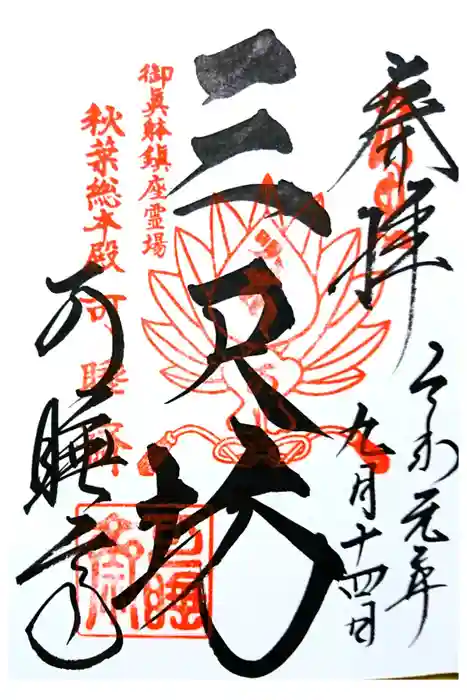 奉拝
令和元年
九月十四日
三尺坊
御真躰鎮座霊場
秋葉総本殿可睡斎
可睡斎